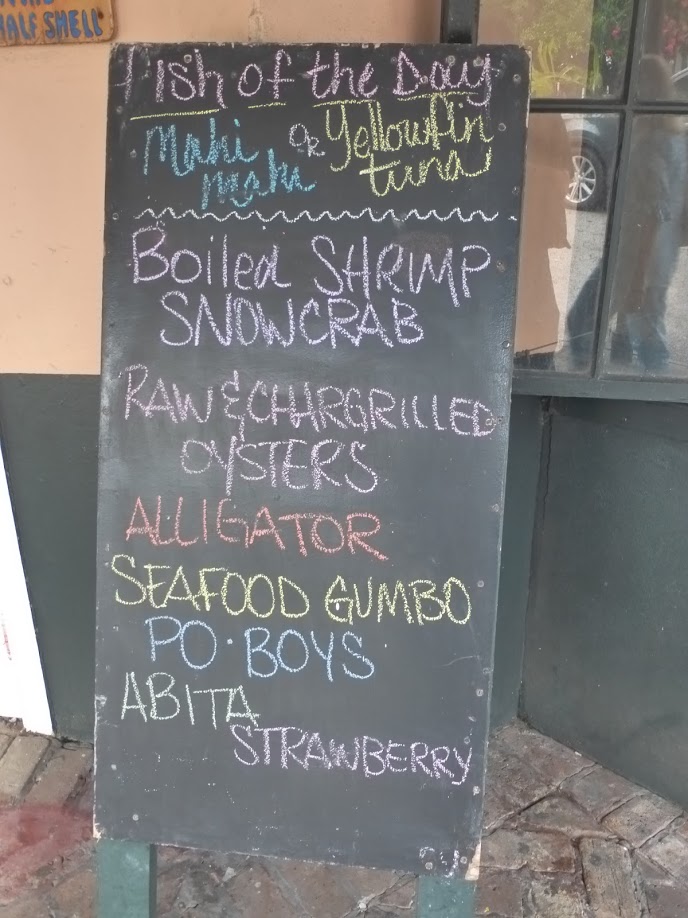 HALF SHELL
Fish of the Day
Mahi OR Yellowfin
Mahi tuna
Boiled SHRIMP
SNOWCRAB
RAW & CHARGRILLED
OYSTERS
ALLIGATOR
SEAFOOD GUMBO
PO-BOYS
ABITA
STRAWBERRY